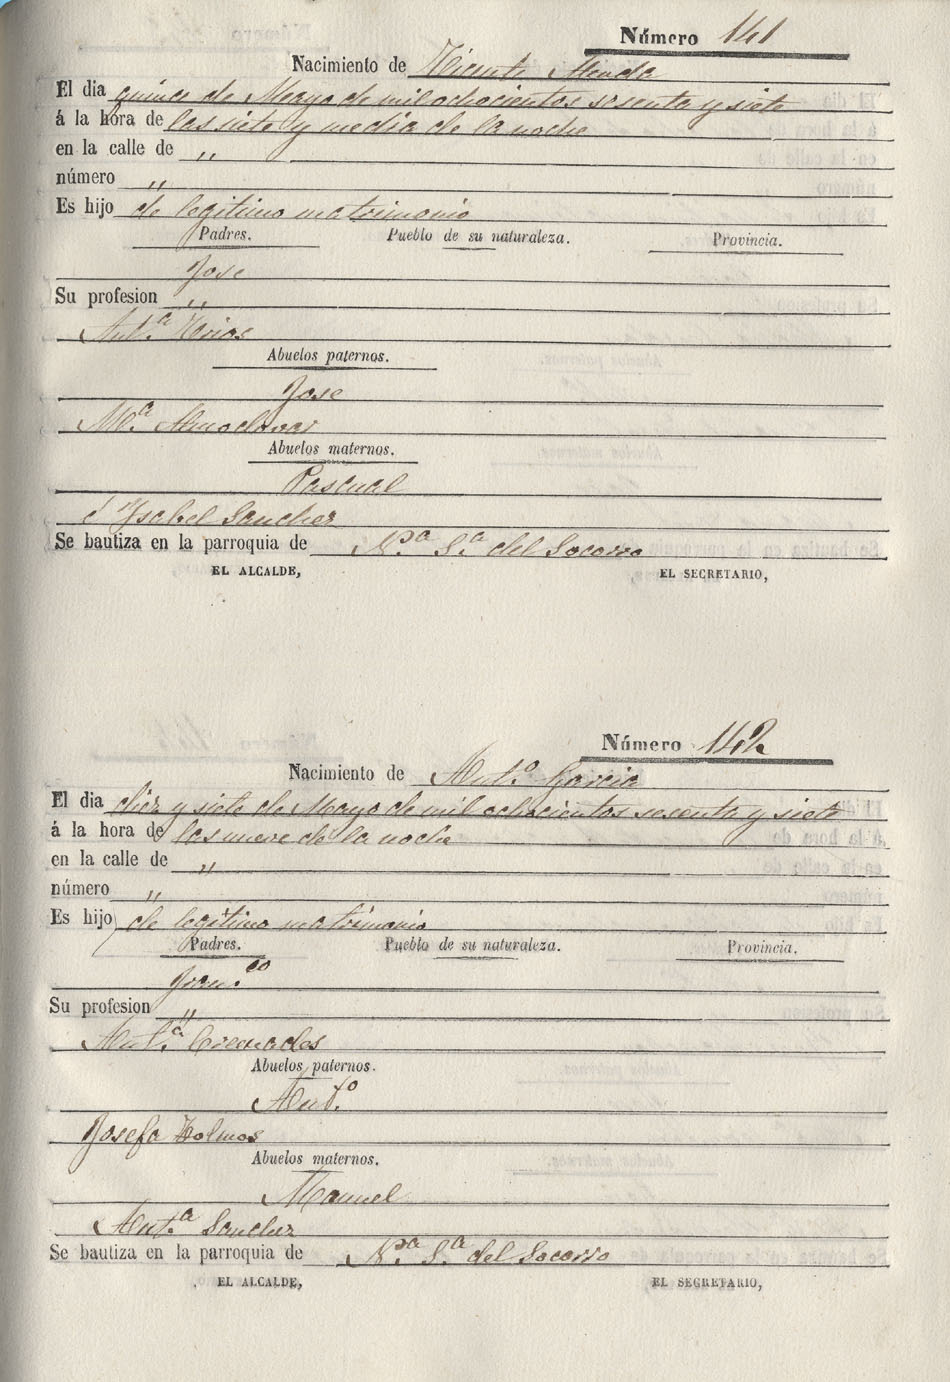 Número 141
Nacimiento de Vicente Menda
El dia quince de Mayo de mil ochocientos sesenta y siete
á la hora de las siete y media de la noche
en la calle de "
número "
Es hijo de legitimo matrimonio
Padres. Pueblo de su naturaleza. Provincia.
Jose
Su profesion "
Ant.ª
Abuelos paternos.
Jose
M.ª Almodovar
Abuelos maternos.
Pascual
é Ysabel Sanchez
Se bautiza en la parroquia de N.ª S.ª del Socorro
EL ALCALDE, EL SECRETARIO,
Número 142
Nacimiento de Ant.º Garcia
El dia diez y siete de Mayo de mil ochocientos sesenta y siete
á la hora de las nueve de la noche
en la calle de "
número "
Es hijo de legitimo matrimonio
Padres. Pueblo de su naturaleza. Provincia.
Fran.co
Su profesion "
Ant.ª Cremades
Abuelos paternos.
Ant.º
Josefa
Abuelos maternos.
Manuel
Ant.ª Sanchez
Se bautiza en la parroquia de N.ª S.ª del Socorro
EL ALCALDE, EL SECRETARIO,